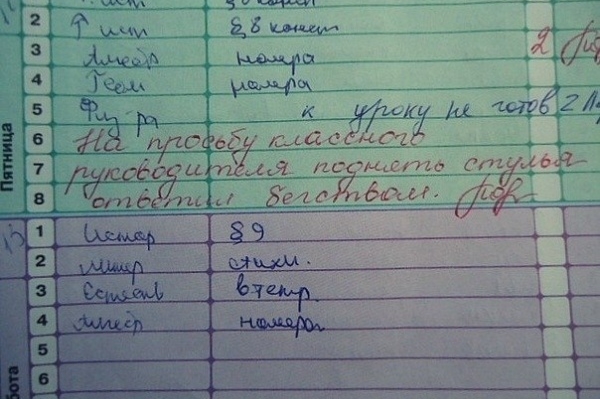 § 8 конст
2 ↑ ист § 8 конст
3 Алгебр номера 2
4 Геом номера
5 Физ ра к уроку не готов 2
6 На просьбу классного
7 руководителя поднять стулья
8 ответил бегством.
Пятница
1 Истор § 9
2 Литер стихи.
3 Естеств в тетр.
4 Алгебр номера
5
6
бота